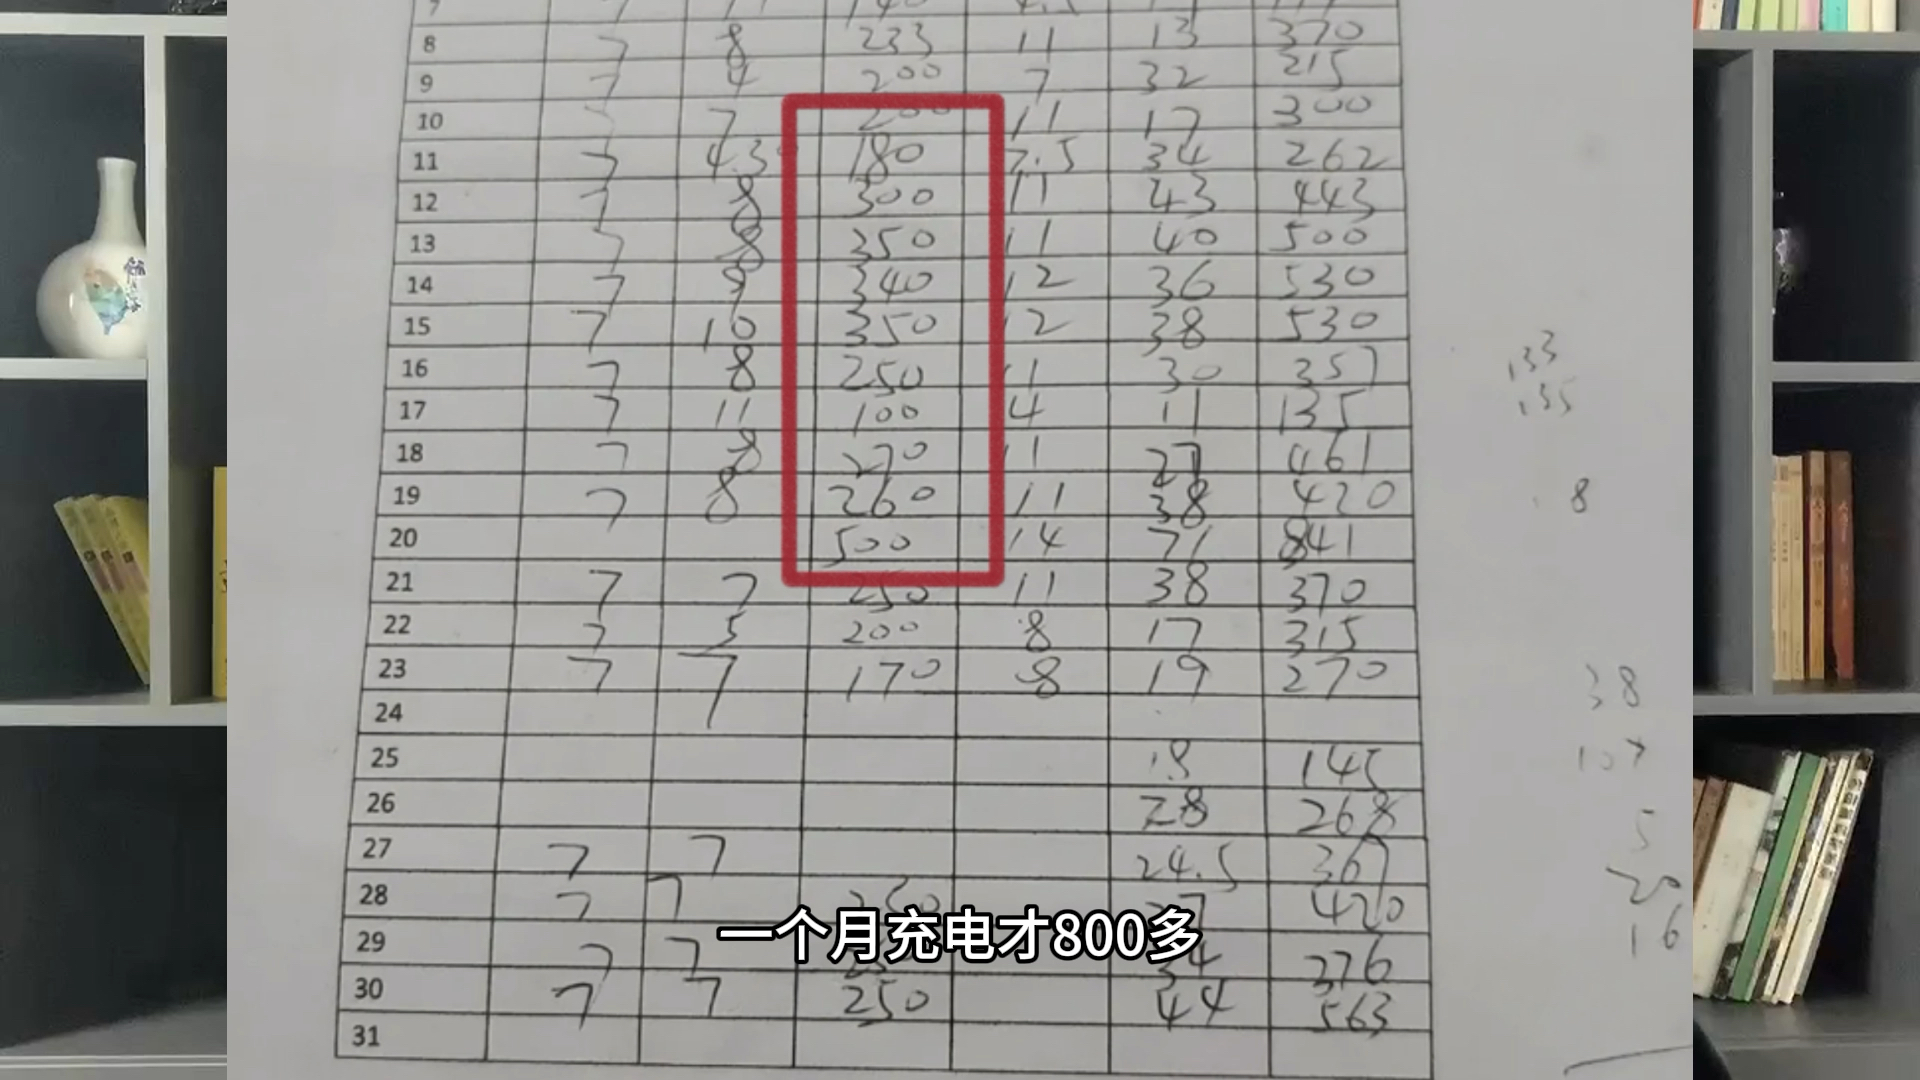 8 7 8 233 11 13 370
9 7 4 200 7 32 215
10 7 200 11 17 300
11 7 4.3 180 7.5 34 262
12 7 8 300 11 43 443
13 7 8 350 11 40 500
14 7 9 340 12 36 530
15 7 10 350 12 38 530
133
16 7 8 250 11 30 357
135
17 7 11 100 4 11 135
18 7 8 270 11 27 461
19 7 8 260 11 38 420
8
20 500 14 71 841
21 7 7 250 11 38 370
22 7 5 200 8 17 315
23 7 7 170 8 19 270
38
24
25 18 145
107
26 28 268
5
27 7 7 24.5 367
20
28 7 7 250 27 420
16
一个月充电才800多
29 7 7 34 276
30 7 7 250 44 563
31